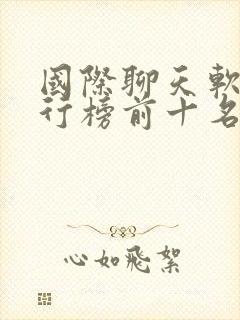 國際聊天軟
行榜前十名
心如飛絮